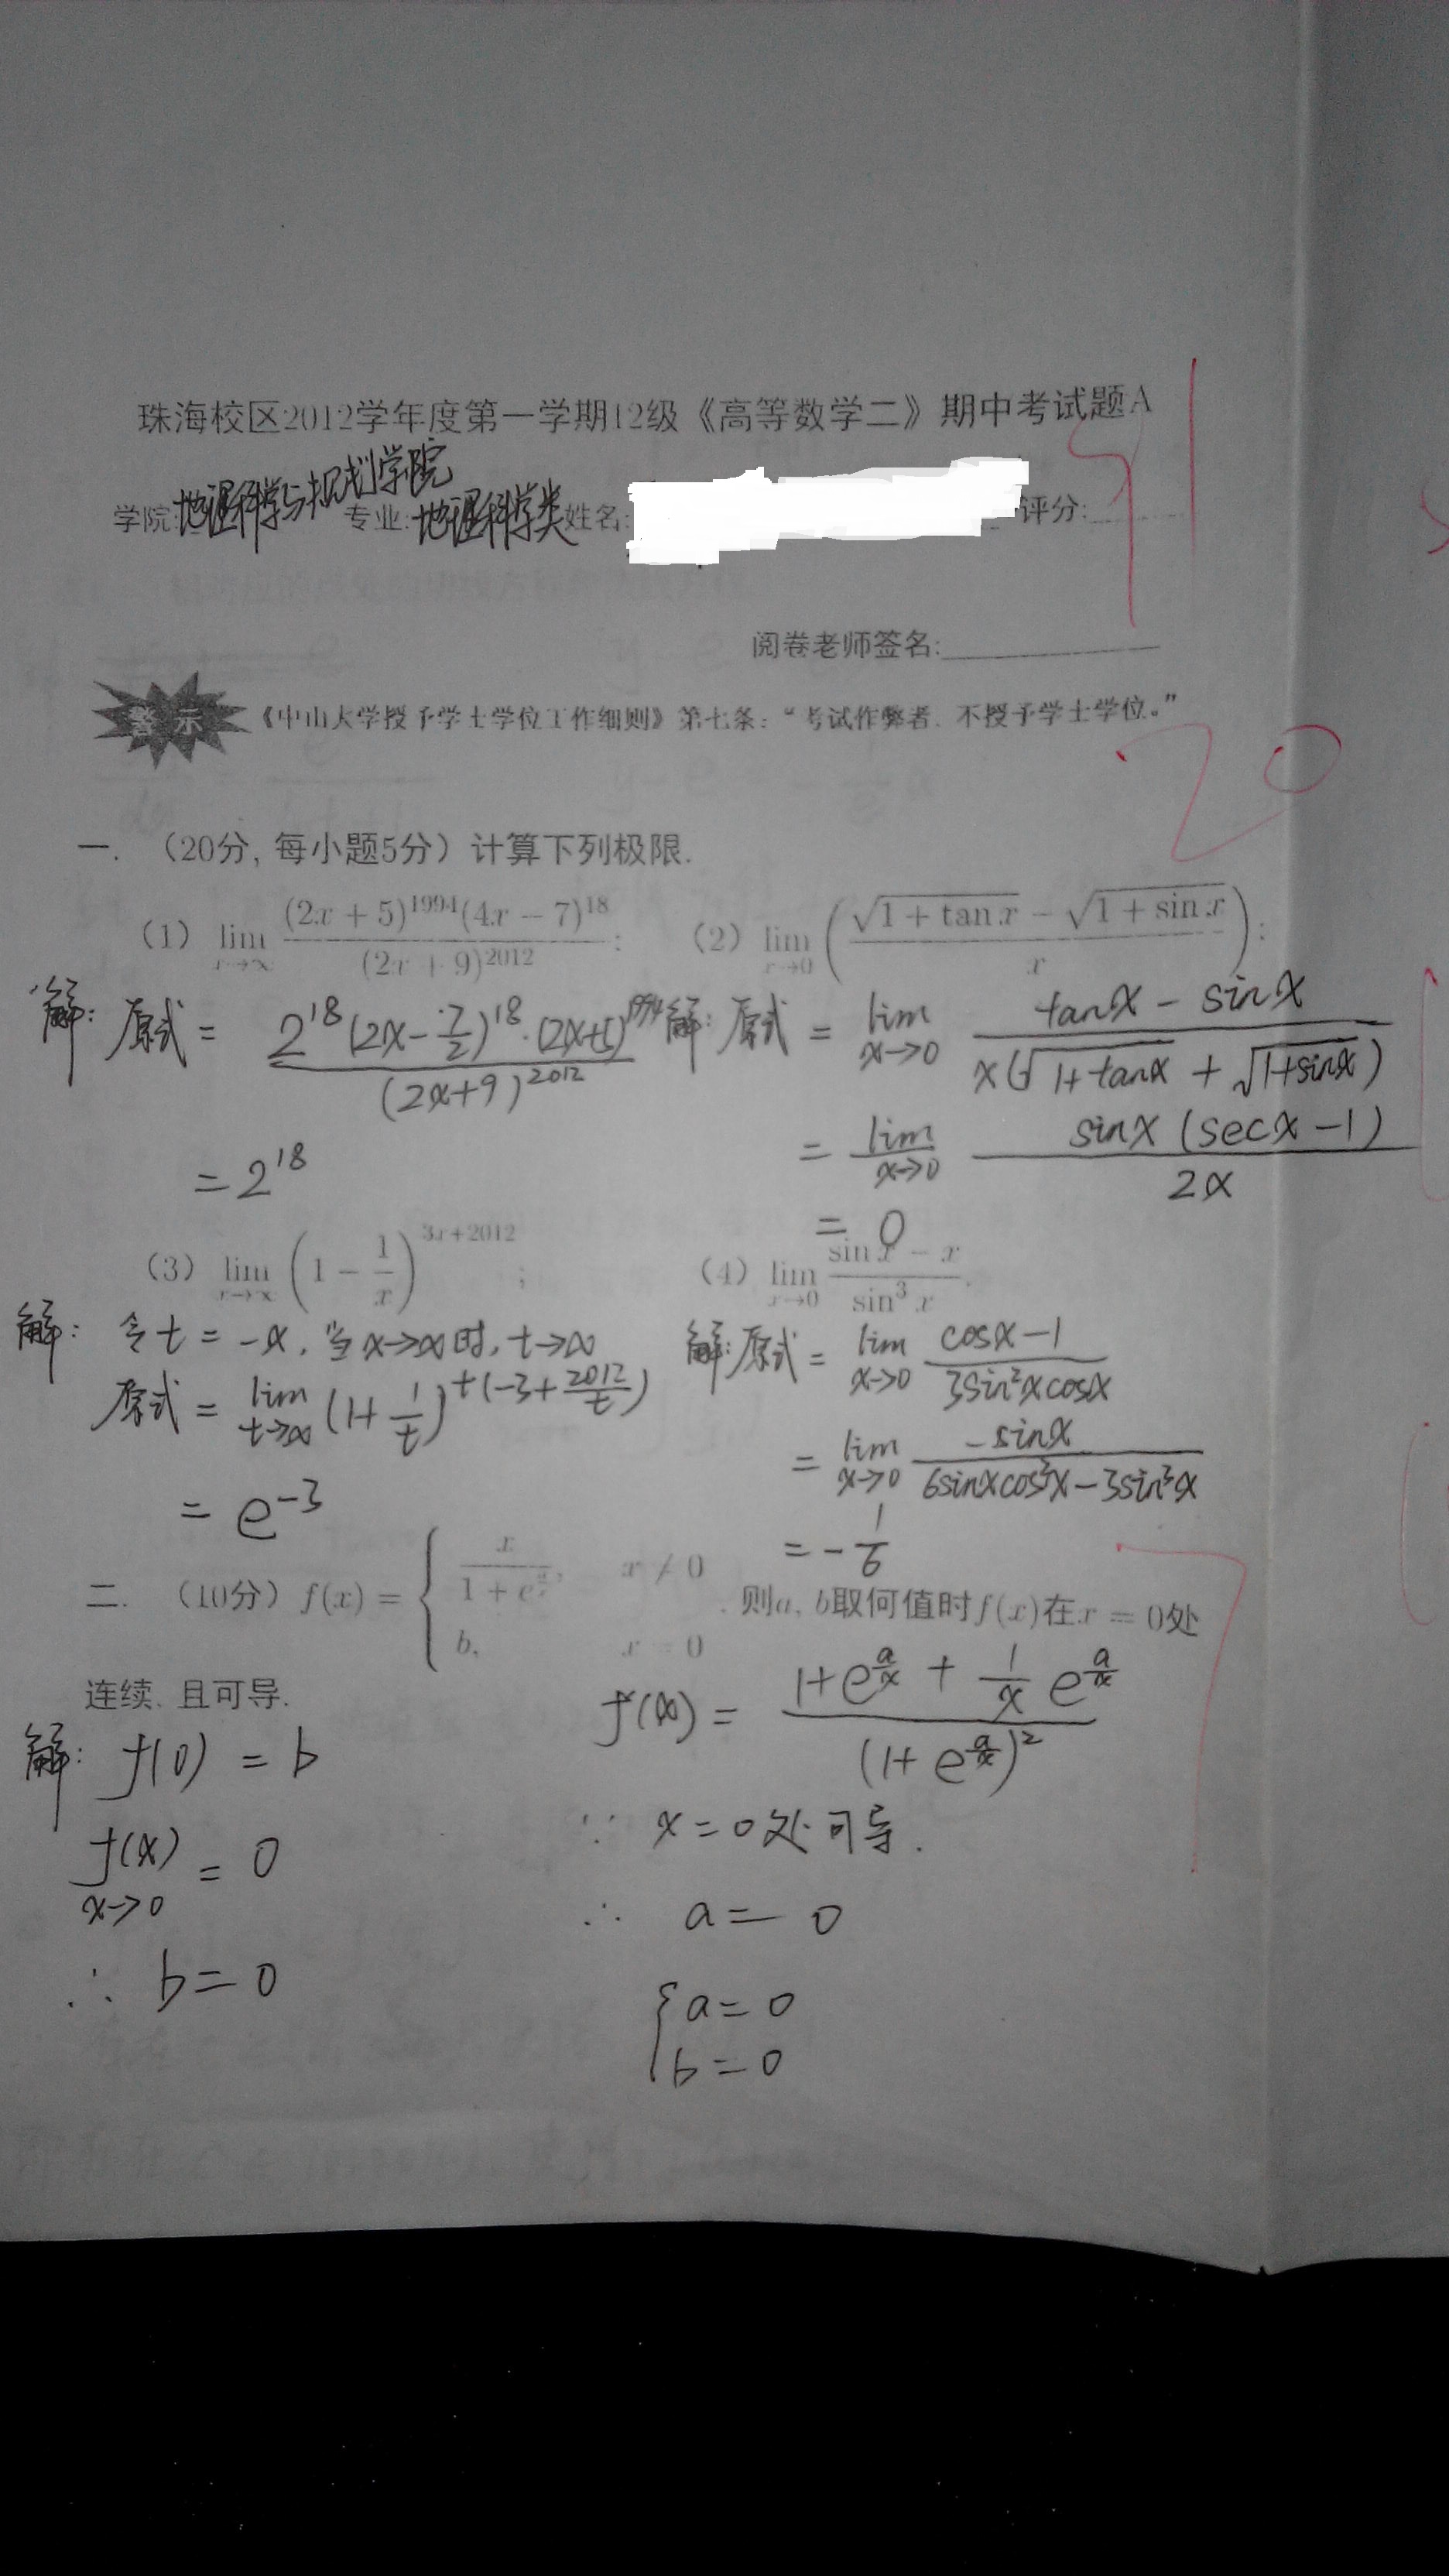 珠海校区2012学年度第一学期12级《高等数学二》期中考试题A
学院: 地理科学与规划学院 专业: 地理科学类 姓名: 评分: 91
阅卷老师签名:
警示 《中山大学授予学士学位工作细则》第七条：“考试作弊者, 不授予学士学位。”
20
一. （20分, 每小题5分）计算下列极限.
（1） lim x→∞ (2x + 5)^1994 (4x − 7)^18 / (2x + 9)^2012 ; （2） lim x→0 ( (√(1 + tan x) − √(1 + sin x)) / x ) ;
解: 原式 = 2^18 (2x − 7/2)^18 · (2x+5)^1994 / (2x+9)^2012
= 2^18
解: 原式 = lim x→0 (tanx − sinx) / x(√(1+tanx) + √(1+sinx))
= lim x→0 sinx (secx − 1) / 2x
= 0
（3） lim x→∞ (1 − 1/x)^(3x+2012) ; （4） lim x→0 (sin x − x) / sin³ x .
解: 令 t = −x, 当 x→∞ 时, t→∞
原式 = lim t→∞ (1 + 1/t)^t(−3 + 2012/t)
= e^−3
解: 原式 = lim x→0 (cosx − 1) / 3sin²xcosx
= lim x→0 −sinx / (6sinxcos²x − 3sin³x)
= − 1/6
7
二. （10分）f(x) = { x / (1 + e^(a/x)), x ≠ 0
b, x = 0 . 则a, b取何值时f(x)在x = 0处
连续, 且可导.
解: f(0) = b
f(x) x→0 = 0
∴ b = 0
f'(x) = (1 + e^(a/x) + 1/x e^(a/x)) / (1 + e^(a/x))²
∵ x = 0 处可导.
∴ a = 0
{ a = 0
b = 0